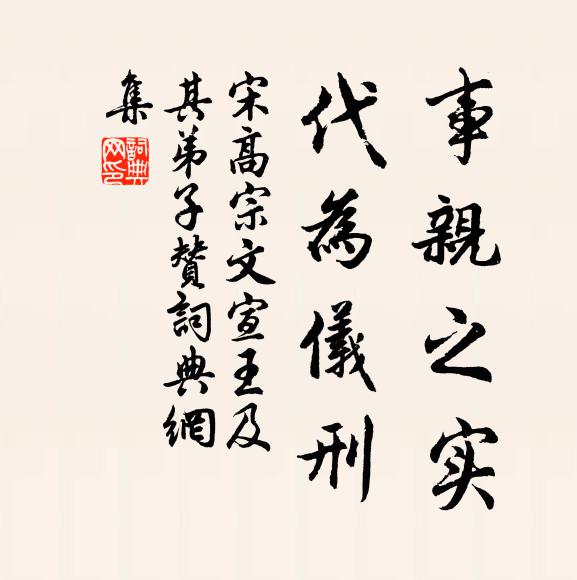 事親之实
代為儀刑
宋高宗文宣王及
其弟子贊詞典網
集
詞典
网印